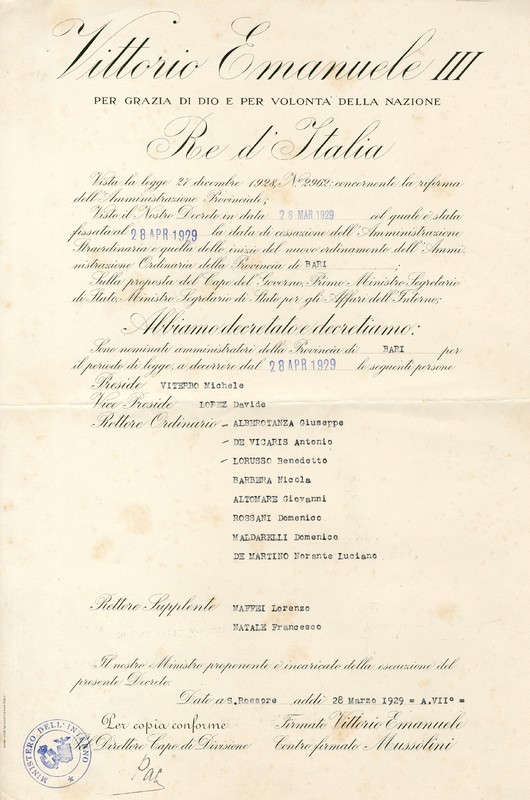 Vittorio Emanuele III
PER GRAZIA DI DIO E PER VOLONTA' DELLA NAZIONE
Re d'Italia
Vista la legge 27 dicembre 1928, N.o 2962; concernente la riforma
dell'Amministrazione Provinciale;
Visto il Nostro Decreto in data 28 MAR 1929 col quale è stata
fissata al 28 APR 1929 la data di cessazione dell'Amministrazione
Straordinaria e quella dello inizio del nuovo ordinamento dell'Ammi-
nistrazione Ordinaria della Provincia di BARI ;
Sulla proposta del Capo del Governo, Primo Ministro Segretario
di Stato, Ministro Segretario di Stato per gli Affari dell'Interno;
Abbiamo decretato e decretiamo:
Sono nominati amministratori della Provincia di BARI per
il periodo di legge, a decorrere dal 28 APR 1929 le seguenti persone
Preside VITERBO Michele
Vice Preside LOPEZ Davide
Rettore Ordinario - ALBEROTANZA Giuseppe
- DE VICARIS Antonio
- LORUSSO Benedetto
BARBERA Nicola
ALTOMARE Giovanni
ROSSANI Domenico
MALDARELLI Domenico
DE MARTINO Norante Luciano
Rettore Supplente MAFFEI Lorenzo
NATALE Francesco
Il nostro Ministro proponente è incaricato della esecuzione del
presente Decreto.
Dato a S.Rossore addì 28 Marzo 1929 = A.VII° =
Per copia conforme Firmato Vittorio Emanuele
Direttore Capo di Divisione Contro firmato Mussolini
MINISTERO DELL'INTERNO